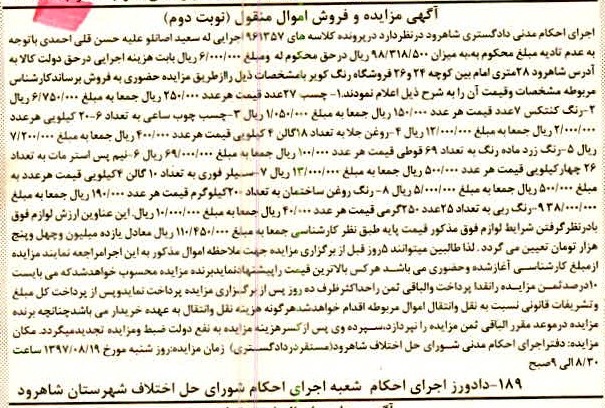 آگهی مزایده و فروش اموال منقول (نوبت دوم)
اجرای احکام مدنی دادگستری شاهرود درنظردارد درپرونده کلاسه های ۹۶۱۳۵۷ اجرایی له سعید اصانلو علیه حسن قلی احمدی باتوجه
به عدم تادیه مبلغ محکوم به،به میزان ۹۸/۳۱۸/۵۰۰ ریال درحق محکوم له ومبلغ ۶/۰۰۰/۰۰۰ ریال بابت هزینه اجرایی درحق دولت کالا به
آدرس شاهرود ۲۸متری امام بین کوچه ۲۴ و۲۶ فروشگاه رنگ کویر بامشخصات ذیل راازطریق مزایده حضوری به فروش برساندکارشناس
مربوطه مشخصات وقیمت آن را به شرح ذیل اعلام نمودند.۱- چسب ۲۷عدد قیمت هرعدد ۲۵۰/۰۰۰ ریال جمعا به مبلغ ۶/۷۵۰/۰۰۰ ریال
۲-رنگ کنتکس ۷عدد قیمت هر عدد ۱۵۰/۰۰۰ ریال جمعا به مبلغ ۱/۰۵۰/۰۰۰ ریال ۳-چسب چوب ساعی به تعداد ۶-۲۰ کیلویی هرعدد
۲/۰۰۰/۰۰۰ ریال جمعا به مبلغ ۱۲/۰۰۰/۰۰۰ ریال ۴-روغن جلا به تعداد ۱۸گالن ۴ کیلویی قیمت هرعدد ۴۰۰/۰۰۰ ریال جمعا به مبلغ ۷/۲۰۰/۰۰۰
ریال ۵-رنگ زرد ماده رنگ به تعداد ۶۹ قوطی قیمت هر عدد ۱۰۰/۰۰۰ ریال جمعا به مبلغ ۶۹/۰۰۰/۰۰۰ ریال ۶-نیم پس استر مات به تعداد
۲۶ چهارکیلویی قیمت هر عدد ۵۰۰/۰۰۰ ریال جمعا به مبلغ ۱۳/۰۰۰/۰۰۰ ریال ۷-سیلر فوری به تعداد ۱۰ گالن ۴کیلویی قیمت هرعدد به
مبلغ ۵۰۰/۰۰۰ ریال جمعا به مبلغ ۵/۰۰۰/۰۰۰ ریال ۸-رنگ روغن ساختمان به تعداد ۲۰۰کیلوگرم قیمت هر عدد ۱۹۰/۰۰۰ ریال جمعا به مبلغ
۳۸/۰۰۰/۰۰۰ ۹-رنگ ربی به تعداد ۲۵عدد ۲۵۰گرمی قیمت هر عدد ۴۰/۰۰۰ ریال جمعا به مبلغ ۱۰/۰۰۰/۰۰۰ ریال.این عناوین ارزش لوازم فوق
بادرنظرگرفتن شرایط لوازم فوق مذکور قیمت پایه طبق نظر کارشناسی جمعا به مبلغ ۱۱۰/۴۵۰/۰۰۰ ریال معادل یازده میلیون وچهل وپنج
هزار تومان تعیین می گردد .لذا طالبین میتوانند ۵روز قبل از برگزاری مزایده جهت ملاحظه اموال مذکور به این اجرامراجعه نمایند مزایده
ازمبلغ کارشناسی آغازشده وحضوری می باشد هرکس بالاترین قیمت راپیشنهادنمایدبرنده مزایده محسوب خواهدشدکه می بایست
۱۰درصدثمن مزایده رانقدا پرداخت والباقی ثمن راحداکثرظرف ده روز پس از برگزاری مزایده پرداخت نمایدوپس از پرداخت کل مبلغ
وتشریفات قانونی نسبت به نقل وانتقال اموال مربوطه اقدام خواهدشدهرگونه هزینه نقل وانتقال به عهده خریدار می باشدچنانچه برنده
مزایده درموعد مقرر الباقی ثمن مزایده را نپردازد،سپرده وی پس ازکسرهزینه مزایده به نفع دولت ضبط ومزایده تجدیدمیگردد. مکان
مزایده:دفتراجرای احکام مدنی شورای حل اختلاف شاهرود(مستقردردادگستری) زمان مزایده:روز شنبه مورخ ۱۳۹۷/۰۸/۱۹ ساعت
۸/۳۰ الی ۹صبح
۱۸۹-دادورز اجرای احکام شعبه اجرای احکام شورای حل اختلاف شهرستان شاهرود